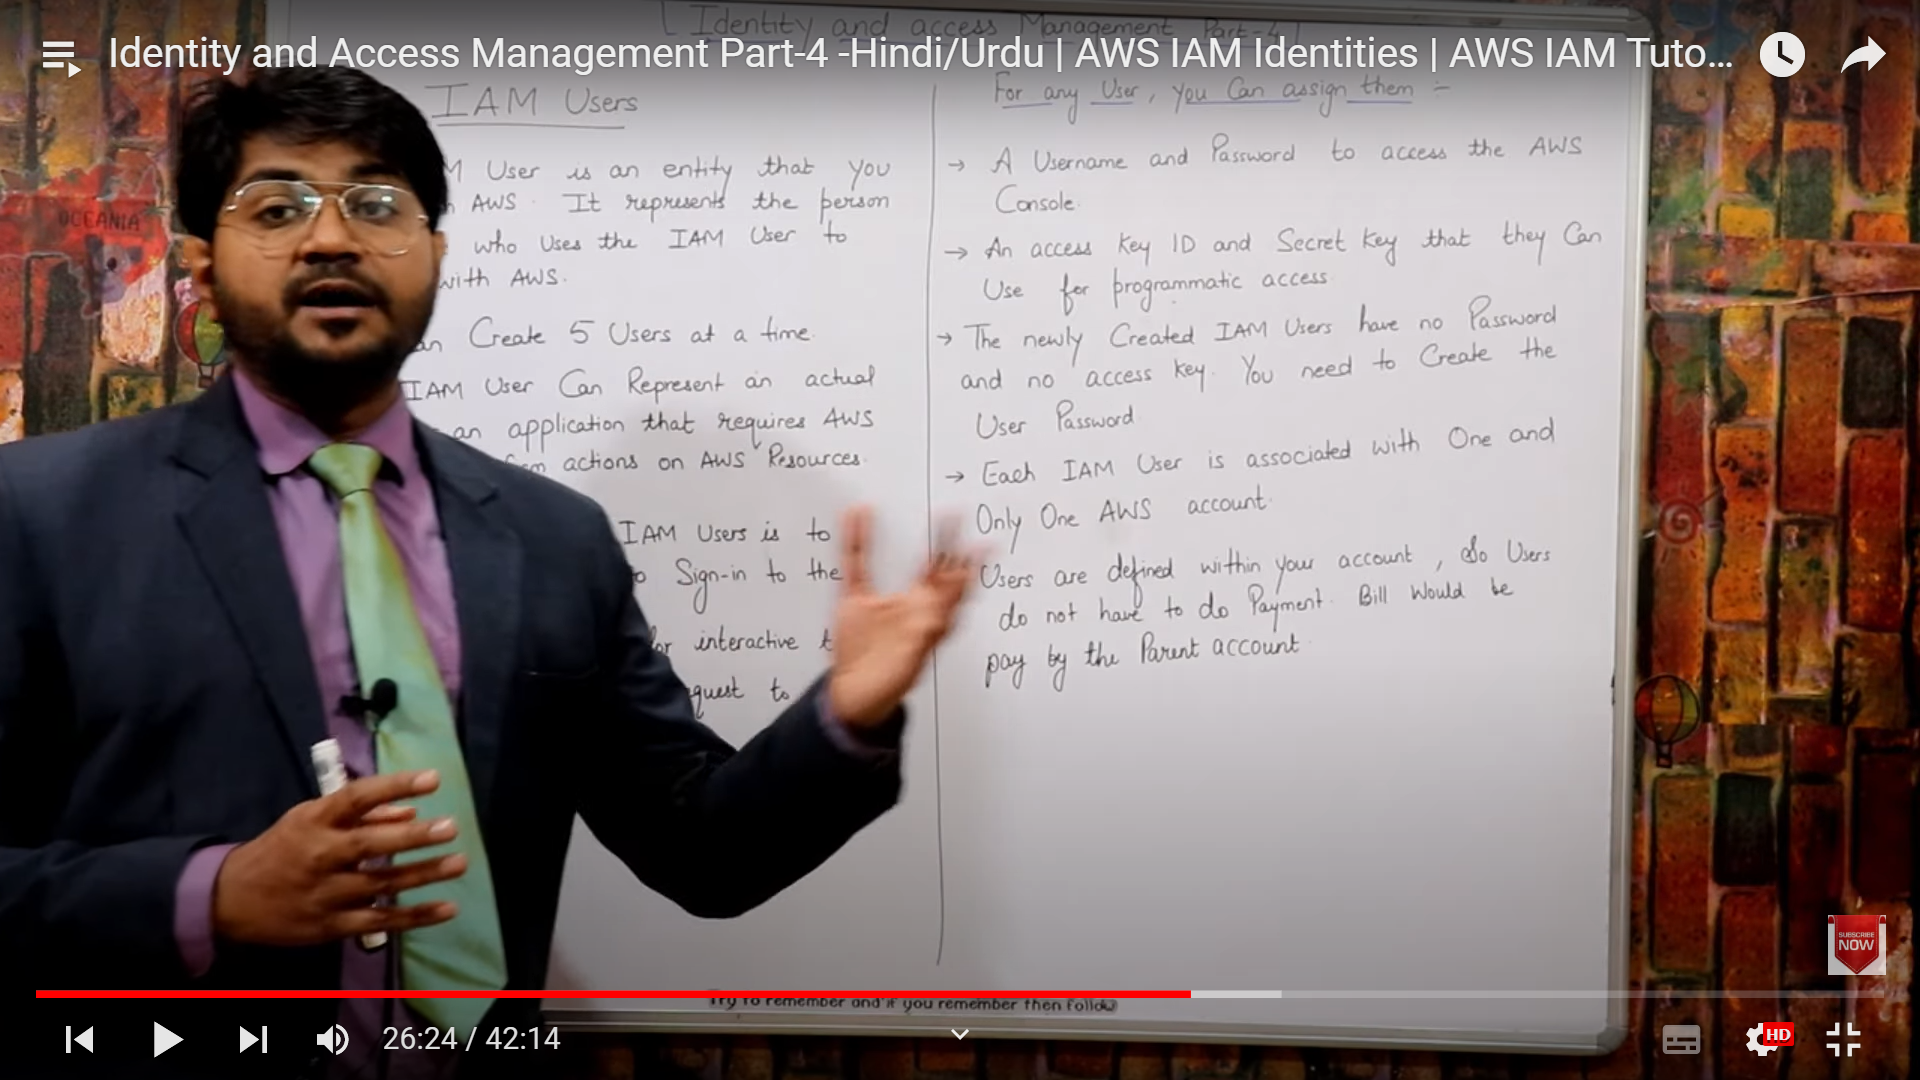 [Identity and access Management Part-4]
Identity and Access Management Part-4 -Hindi/Urdu | AWS IAM Identities | AWS IAM Tuto...
OCEANIA
IAM Users
User is an entity that you
AWS. It represents the person
who uses the IAM User to
with AWS.
Create 5 Users at a time.
IAM User Can Represent an actual
an application that requires AWS
actions on AWS Resources.
IAM Users is to
Sign-in to the
interactive
to
For any User, you Can assign them :-
→ A Username and Password to access the AWS
Console.
→ An access Key ID and Secret Key that they Can
Use for programmatic access
→ The newly Created IAM Users have no Password
and no access key. You need to Create the
User Password
→ Each IAM User is associated with One and
Only One AWS account.
Users are defined within your account, So Users
do not have to do Payment. Bill Would be
pay by the Parent account.
SUBSCRIBE
NOW
Try to remember and if you remember then follow
26:24 / 42:14
HD